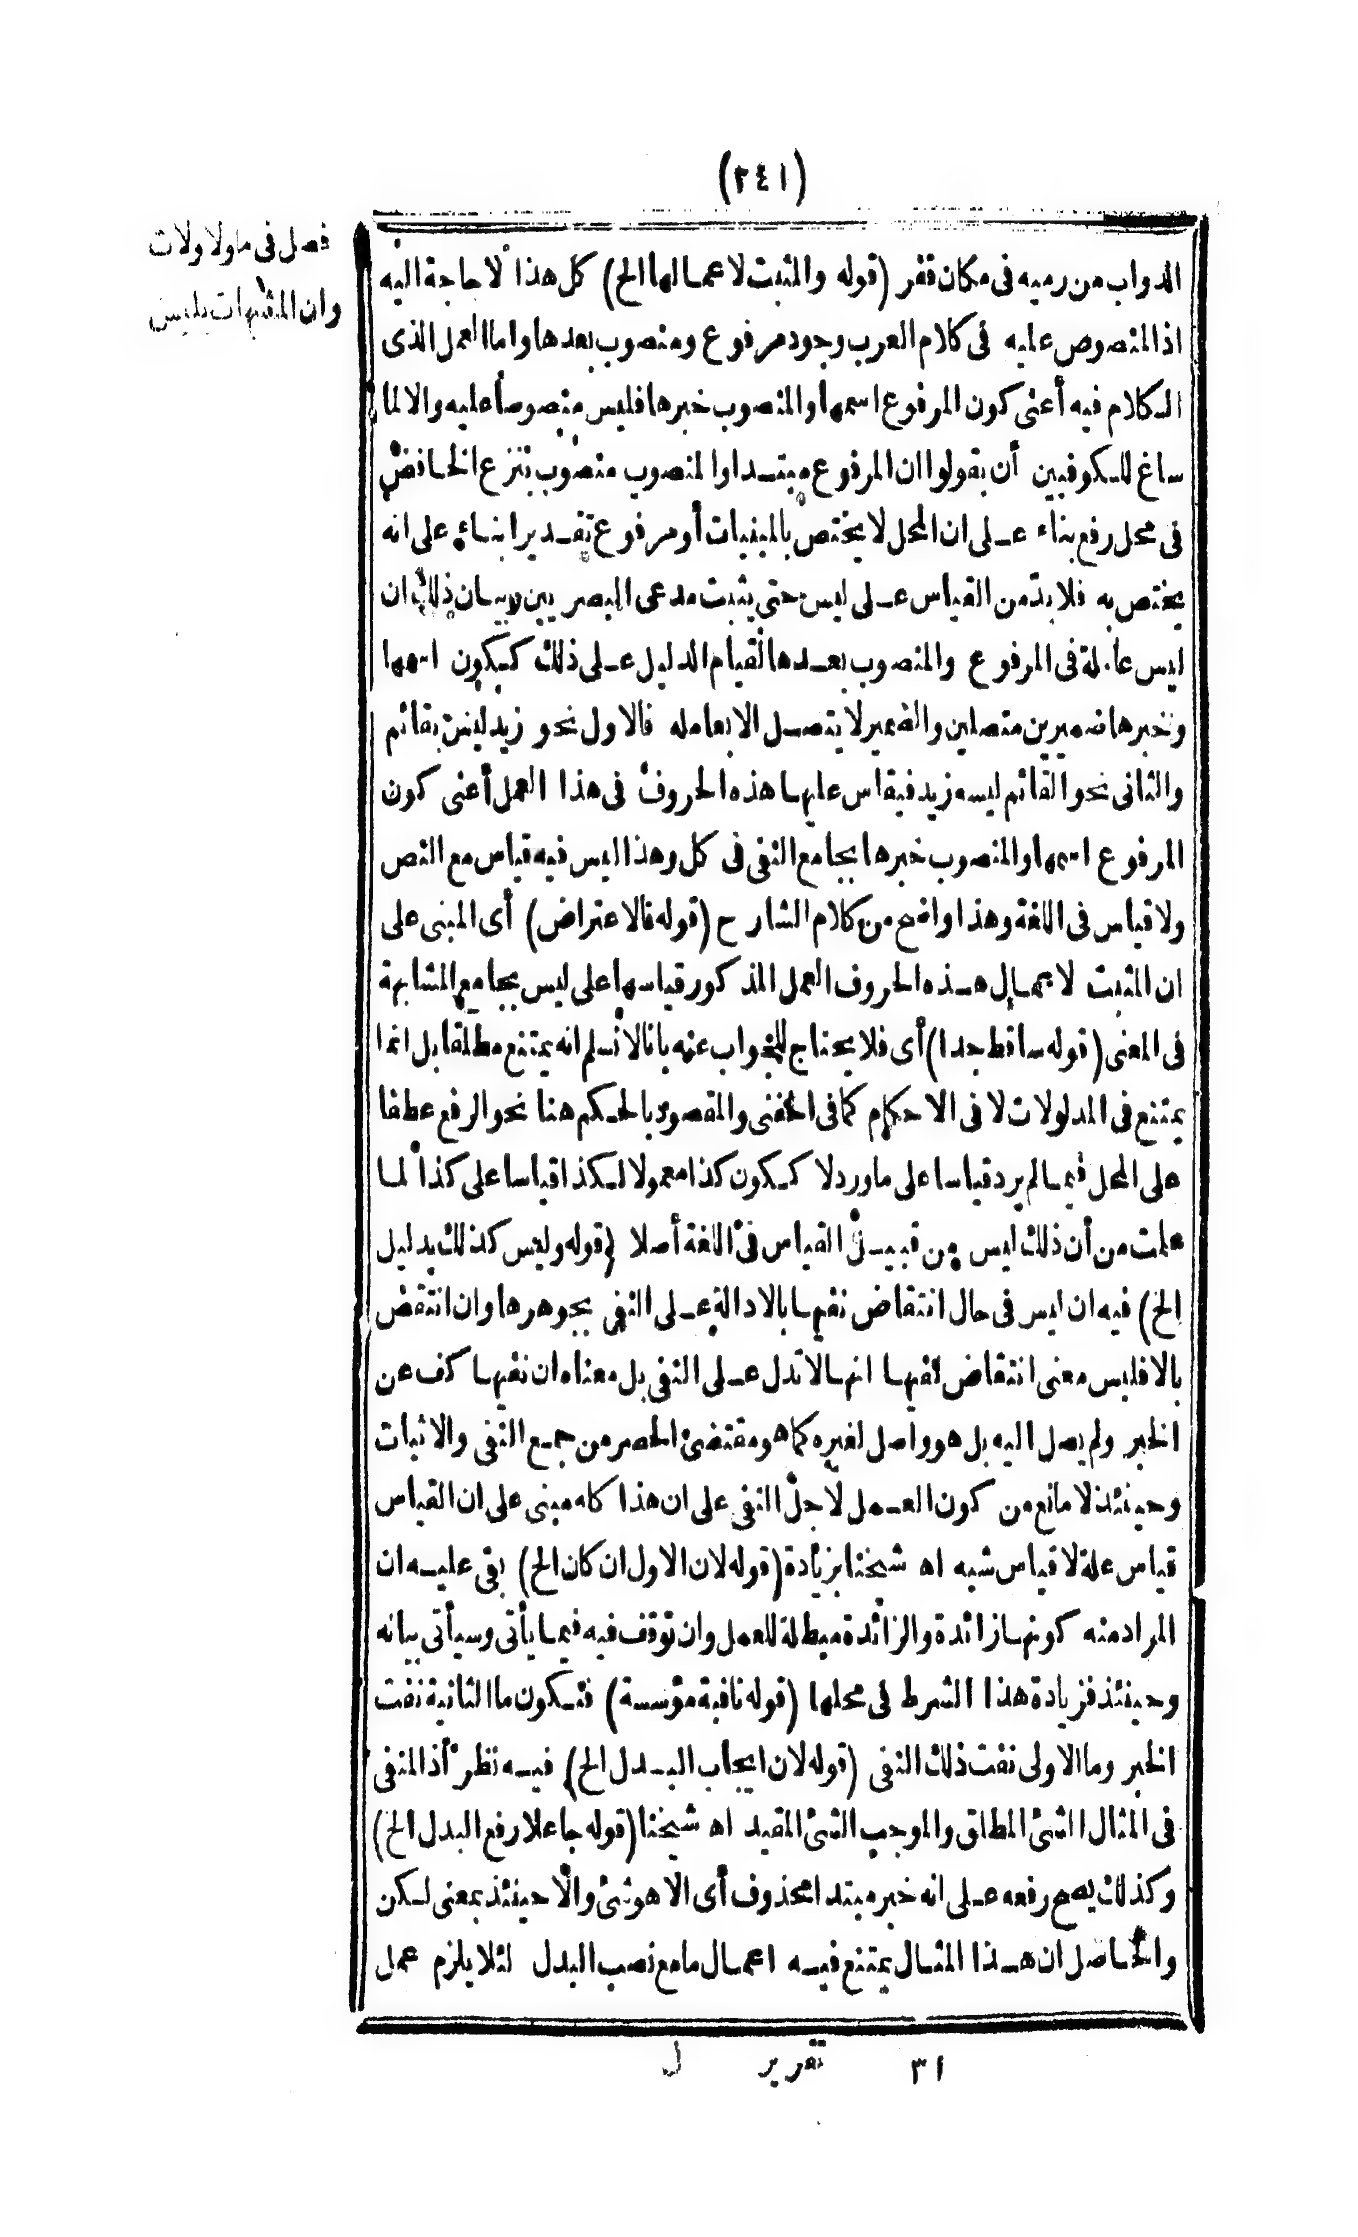 (٢٤١)
فصل في ما ولا ولات
وان المشبهات بليس
الدواب من رميه في مكان قفر (قوله والمثبت لاعمالها الخ) كل هذا لا حاجة اليه
اذ المنصوص عليه في كلام العرب وجود مرفوع ومنصوب بعدها واما العمل الذى
الكلام فيه أعنى كون المرفوع اسمها والمنصوب خبرها فليس منصوصا عليه والا لما
ساغ للكوفيين أن يقولوا ان المرفوع مبتدا والمنصوب منصوب بنزع الخافض
في محل رفع بناء على ان المحل لا يختص بالمبنيات أو مرفوع تقديرا بناء على انه
يختص به فلا بد من القياس على ليس حتى يثبت مدعى البصريين وبيان ذلك ان
ليس عاملة في المرفوع والمنصوب بعدها لقيام الدليل على ذلك ككون اسمها
وخبرها ضميرين متصلين والضمير لا يتصل الا بعامله فالاول نحو زيد ليس بقائم
والثانى نحو القائم ليسه زيد فيقاس عليها هذه الحروف في هذا العمل أعنى كون
المرفوع اسمها والمنصوب خبرها بجامع النفى في كل وهذا ليس فيه قياس مع النص
ولا قياس في اللغة وهذا واضح من كلام الشارح (قوله فالاعتراض) أى المبنى على
ان المثبت لاعمال هذه الحروف العمل المذكور قياسها على ليس بجامع المشابهة
في المعنى (قوله ساقط جدا) أى فلا يحتاج للجواب عنه بانا لا نسلم انه يمتنع مطلقا بل انما
يمتنع في المدلولات لا في الاحكام كما في الحفنى والمقصود بالحكم هنا نحو الرفع عطفا
على المحل فيما لم يرد قياسا على ما ورد لا ككون كذا معمولا لكذا قياسا على كذا لما
علمت من أن ذلك ليس من قبيل القياس في اللغة أصلا (قوله وليس كذلك بدليل
الخ) فيه ان ليس في حال انتقاض نفيها بالا دالة على النفى بجوهرها وان انتقض
بالا فليس معنى انتقاض نفيها انها لا تدل على النفى بل معناه ان نفيها كف عن
الخبر ولم يصل اليه بل هو واصل لغيره كما هو مقتضى الحصر من جمع النفى والاثبات
وحينئذ لا مانع من كون العمل لاجل النفى على ان هذا كله مبنى على ان القياس
قياس علة لا قياس شبه اه شيخنا بزيادة (قوله لان الاول ان كان الخ) بقى عليه ان
المراد منه كونها زائدة والزائدة مبطلة للعمل وان توقف فيه فيما يأتى وسيأتى بيانه
وحينئذ فزيادة هذا الشرط في محلها (قوله نافية مؤسسة) فتكون ما الثانية نفت
الخبر وما الاولى نفت ذلك النفى (قوله لان ايجاب البدل الخ) فيه نظر اذ المنفى
في المثال الشئ المطلق والموجب الشئ المقيد اه شيخنا (قوله جاعلا رفع البدل الخ)
وكذلك يصح رفعه على انه خبر مبتدا محذوف أى الا هو شئ والا حينئذ بمعنى لكن
والحاصل ان هذا المثال يمتنع فيه اعمال ما مع نصب البدل لئلا يلزم عمل
٣١ تقرير ل